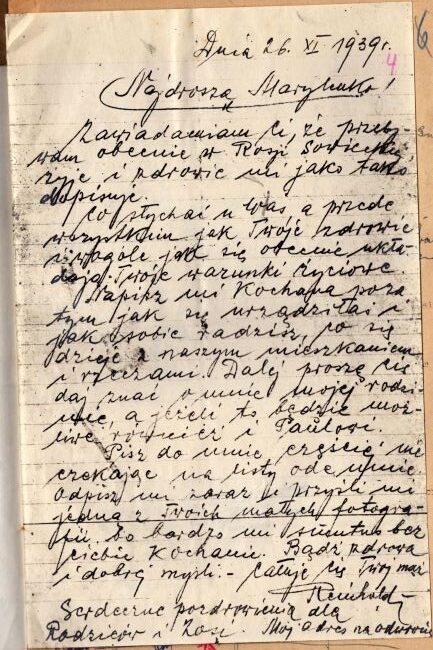 Dnia 26. XI 1939r.
4
Najdroższa Marylenko!
Zawiadamiam Ci, że przeby-
wam obecnie w Rosji Sowieckiej
żyję i zdrowie mi jako tako
dopisuje.
Co słychać u Was, a przede
wszystkim jak Twoje zdrowie
i wogóle jak się obecnie ukła-
dają Twoje warunki życiowe.
Napisz mi Kochana poza
tym jak się urządziłaś i
jak sobie radzisz, co się
dzieje z naszym mieszkaniem
i rzeczami. Dalej proszę Cię
daj znać o mnie mojej rodzi-
nie, a jeżeli to będzie moż-
liwe również i Paulowi.
Pisz do mnie częściej nie
czekając na listy ode mnie.
Odpisz mi zaraz i przyślij mi
jedną z Twoich małych fotogra-
fii, bo bardzo mi smutno bez
ciebie Kochanie. Bądź zdrowa
i dobrej myśli. - Całuję Cię Twój mąż
Reinhold
Serdeczne pozdrowienia dla
Rodziców i Zosi. Mój adres na odwrocie